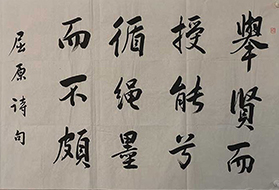 舉賢而
授能兮
循绳墨
而不頗
屈原诗句